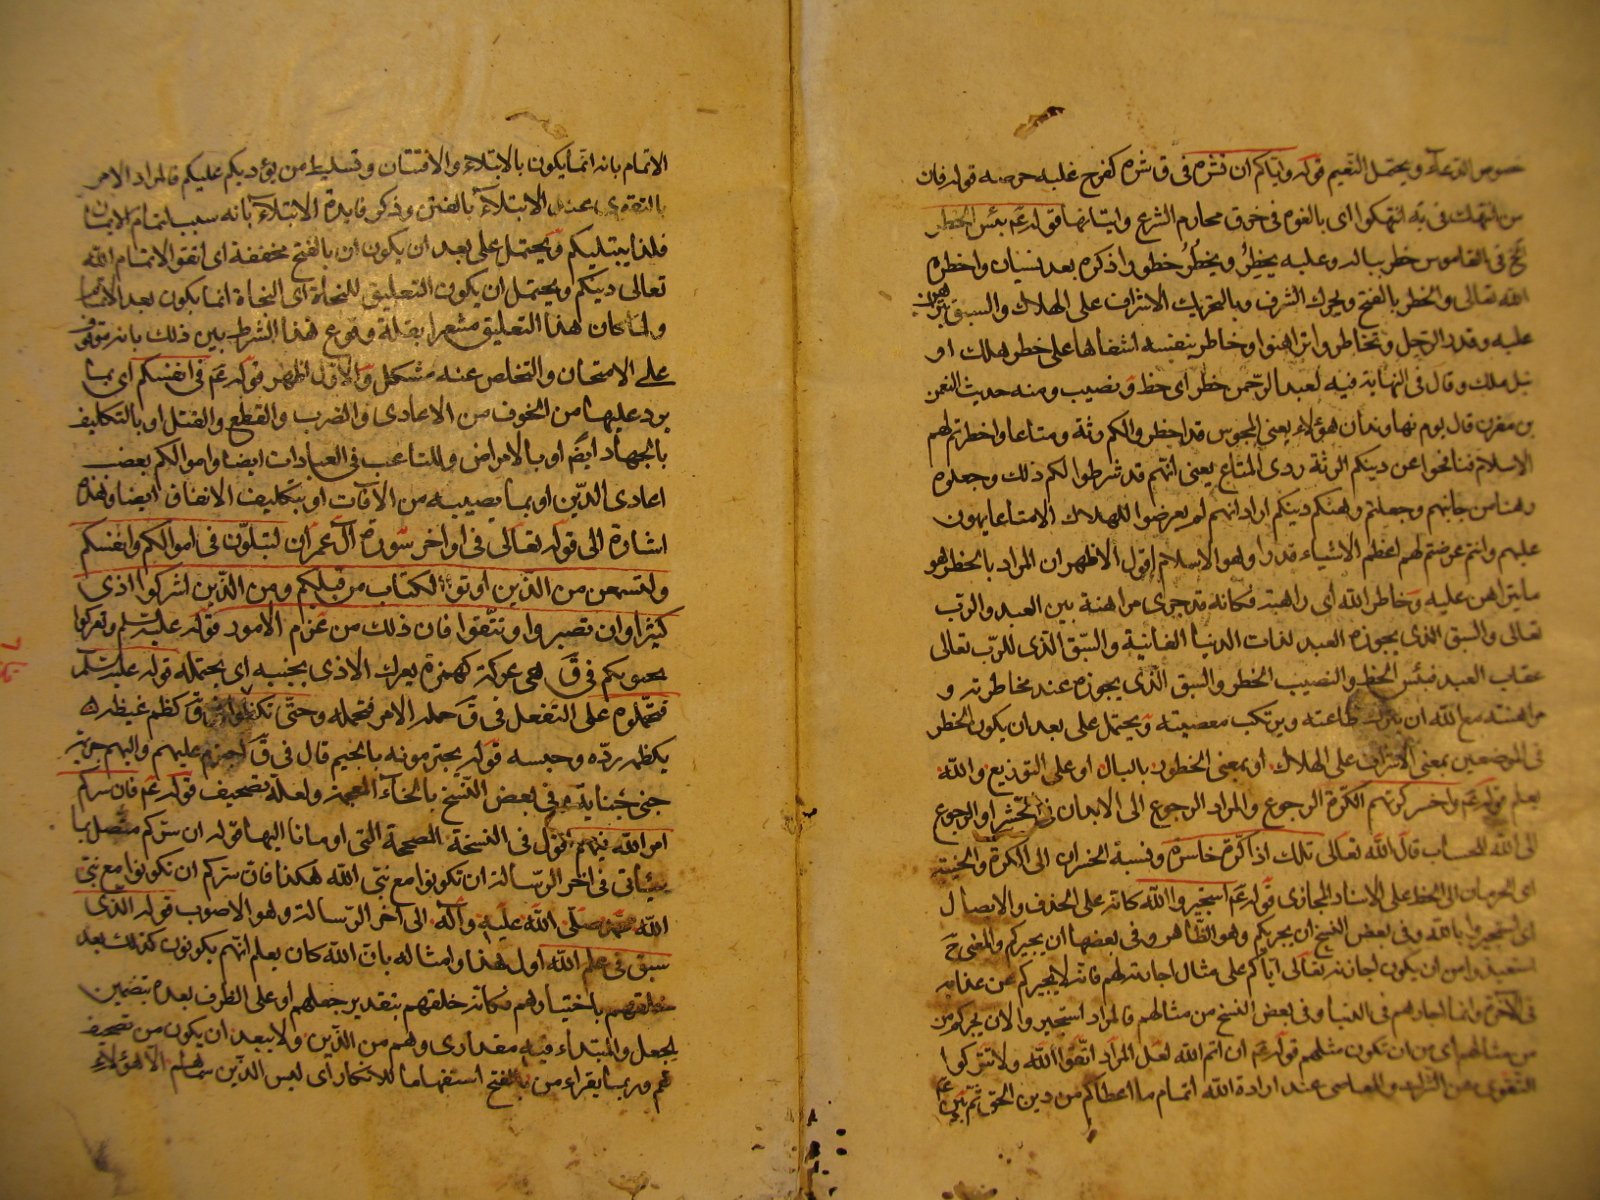 خصوص الدعاء ويحتمل التعميم قوله واياكم ان تشره فى ق شره كفرح غلبه حرصه قوله فان
من انتهك فى يه انتهكوا اى بالغوا فى خرق محارم الشرع واتيانها قوله عم بئس الخطر
فى القاموس خطر بباله وعليه يخطر ويخطر خطورا ذكره بعد نسيان واخطره
الله تعالى والخطر بالفتح ويحرك الشرف وبالتحريك الاشراف على الهلاك والسبق يتراهن
عليه وقدر الرجل وتخاطروا تراهنوا وخاطر بنفسه اشفاها على خطر هلك او
نيل ملك وقال فى النهاية فيه لعبد الرحمن خطر اى حظ ونصيب ومنه حديث النعمن
بن مقرن قال يوم نهاوند ان هؤلاء يعنى المجوس قد اخطروا لكم رثة ومتاعا واخطرتم لهم
الاسلام فنافحوا عن دينكم الرثة ردى المتاع يعنى انهم قد شرطوا لكم ذلك وجعلوه
رهنا من جانبهم وجعلتم رهنكم دينكم اراد انهم لم يعرضوا للهلاك الا متاعا يهون
عليهم وانتم عرضتم لهم اعظم الاشياء قدرا وهو الاسلام اقول الاظهر ان المراد بالخطر هو
ما يتراهن عليه وخاطر الله اى راهنه فكانه قد جرى مراهنة بين العبد والرب
تعالى والسبق الذى يحوزه العبد لذات الدنيا الفانية والسبق الذى للرب تعالى
عقاب العبد فبئس الحظ والنصيب الخطر والسبق الذى يحوزه عند مخاطرته و
مراهنته مع الله ان يترك طاعته ويرتكب معصيته ويحتمل على بعد ان يكون الخطر
فى الموضعين بمعنى الاشراف على الهلاك او بمعنى الخطور بالبال او على التوزيع والله
يعلم قوله عم واخسر كرتهم الكرة الرجوع والمراد الرجوع الى الابدان فى الحشر او الرجوع
الى الله للحساب قال الله تعالى تلك اذا كرة خاسرة ونسبة الخسران الى الكرة والخيبة
اى الحرمان الى الحظ على الاسناد المجازى قوله عم استجيروا الله كانه على الحذف والايصال
اى استجيروا بالله وفى بعض النسخ ان يجريكم وهو الظاهر وفى بعضها ان يجيركم والمعنى ح
استعيذوا من ان يكون اجارته تعالى اياكم على مثال اجارته لهم فانه لا يجيركم عن عذابه
فى الآخرة وانما اجارهم فى الدنيا وفى بعض النسخ من مثالهم فالمراد استجيروا لان يجركم من
من مثالهم اى من ان تكون مثلهم قوله عم ان اتم الله لعل المراد اتقوا الله ولا تتركوا
التقوى عن الشرك والمعاصى عند ارادة الله اتمام ما اعطاكم من دين الحق ثم بين عم
الاتمام بانه انما يكون بالابتلاء والافتتان وتسليط من يؤذيكم عليكم فالمراد الامر
بالتقوى عند الابتلاء بالفتن وذكر فايدة الابتلاء بانه سبب لتمام الايمان
فلذا يبتليكم ويحتمل على بعد ان يكون ان بالفتح مخففة اى اتقوا لاتمام الله
تعالى دينكم ويحتمل ان يكون التعليق للنجاة اى النجاة انما يكون بعد الاتمام
ولما كان هذا التعليق مشعرا بقلة وقوع هذا الشرط بين ذلك بانه موقوف
على الامتحان والتخلص عنه مشكل والاول اظهر قوله عم فى انفسكم اى بما
يرد عليها من الخوف من الاعادى والضرب والقطع والقتل او بالتكليف
بالجهاد ايضا او بالامراض والمتاعب فى العبادات ايضا واموالكم بغصب
اعادى الدين او بما يصيبه من الآفات او بتكليف الانفاق ايضا وهذه
اشارة الى قوله تعالى فى اواخر سورة آل عمران لتبلون فى اموالكم وانفسكم
ولتسمعن من الذين اوتوا الكتاب من قبلكم ومن الذين اشركوا اذى
كثيرا وان تصبروا وتتقوا فان ذلك من عزم الامور قوله عليه السلم وتعركوا
بجنوبكم فى ق هى عركة كهمزة يعرك الاذى بجنبه اى يحتمله قوله عليه السلم
فتحملوه على التفعل فى ق حمله الامر فتحمله وحتى تكظموا فى ق كظم غيظه
يكظمه رده وحبسه قوله يجترمونه بالجيم قال فى ق اجترم عليهم واليهم جريمة
جنى جناية وفى بعض النسخ بالخاء المعجمة ولعله تصحيف قوله عم فان سركم
امر الله فيهم اقول فى النسخة الصحيحة التى اومانا اليها قوله ان سركم متصل بما
سيأتى فى اخر الرسالة ان تكونوا مع نبى الله هكذا فان سركم ان تكونوا مع نبى
الله محمد صلى الله عليه وآله الى آخر الرسالة وهو الاصوب قوله الذى
سبق فى علم الله اول هذا وامثاله بان الله كان يعلم انهم يكونون كذلك بعد
خلقهم باختيارهم فكانه خلقهم بتقدير جعلهم او على الظرف بعده بتضمين
الجعل والمبتداء فيه مقدر اى وهم من الذين ولا يبعد ان يكون من تصحيف
ثم وربما يقراء من بالفتح استفهاما للانكار اى ليس الذين سماهم الا هؤلاء